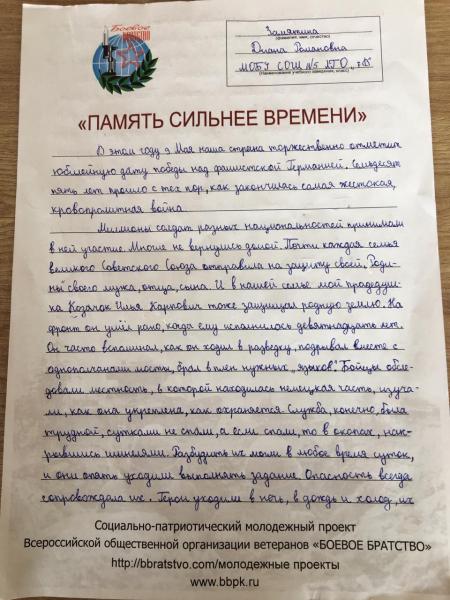 Боевое
БРАТСТВО
Замяткина
(фамилия, имя, отчество)
Диана Романовна
МОБУ СОШ №5 ЛГО
(Наименование учебного заведения, класс)
«ПАМЯТЬ СИЛЬНЕЕ ВРЕМЕНИ»
В этом году 9 Мая наша страна торжественно отметит
юбилейную дату победы над фашистской Германией. Семьдесят
пять лет прошло с тех пор, как закончилась самая жестокая,
кровопролитная война.
Миллионы солдат разных национальностей принимали
в ней участие. Многие не вернулись домой. Почти каждая семья
великого Советского Союза отправила на защиту своей „Роди-
ны" своего мужа, отца, сына. И в нашей семье мой прадедуш-
ка Козачок Илья Карпович тоже защищал родную землю. На
фронт он ушёл рано, когда ему исполнилось девятнадцать лет.
Он часто вспоминал, как он ходил в разведку, подрывал вместе с
однополчанами мосты, брал в плен нужных „языков". Бойцы обсле-
довали местность, в которой находилась немецкая часть, изуча-
ли, как она укреплена, как охраняется. Служба, конечно, была
трудной, сутками не спали, а если спали, то в окопах, нак-
рывшись шинелями. Разбудить их могли в любое время суток,
и они опять уходили выполнять задание. Опасность всегда
сопровождала их. Герои уходили в ночь, в дождь и холод, их
Социально-патриотический молодежный проект
Всероссийской общественной организации ветеранов «БОЕВОЕ БРАТСТВО»
http://bbratstvo.com/молодежные проекты
www.bbpk.ru